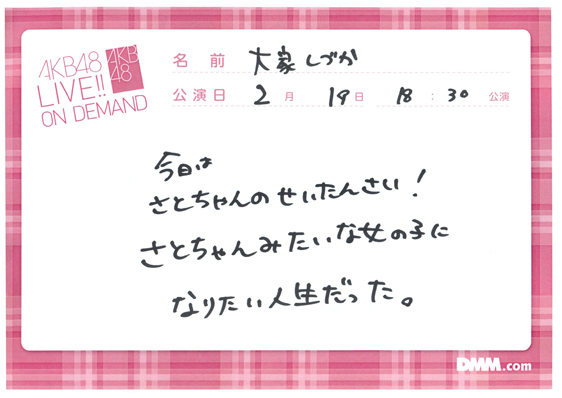 AKB48
LIVE!!
ON DEMAND
AKB
48
名前 大家しづか
公演日 2月 19日 18:30 公演
今日は
さとちゃんのせいたんさい!
さとちゃんみたいな女の子に
なりたい人生だった。
DMM.com